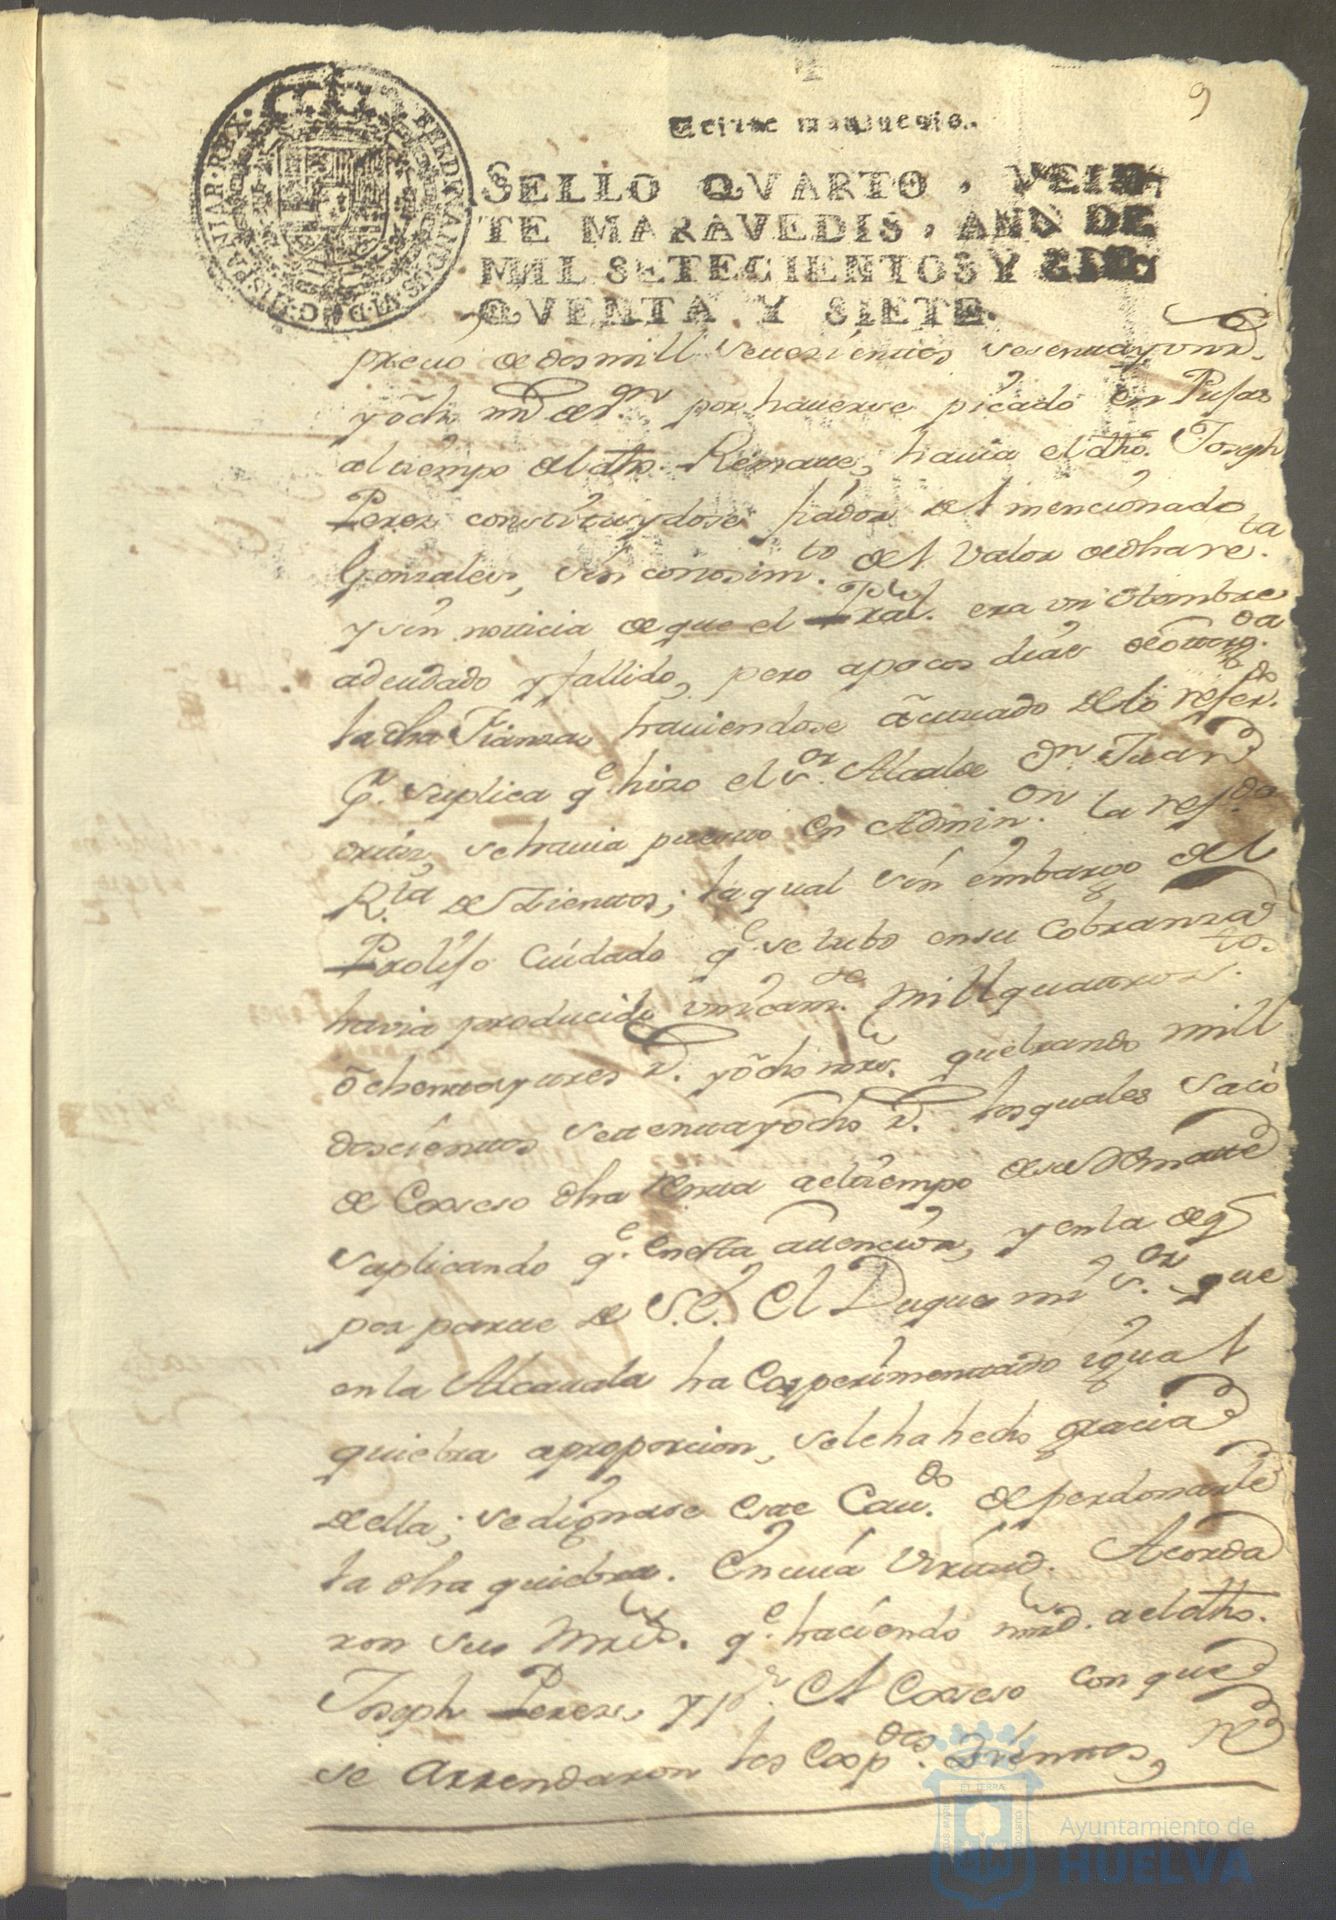 9
Veinte maravedis.
FERDINANDUS·VI·D·G·HISPANIAR·REX·
SELLO QVARTO, VEIN
TE MARAVEDIS, AÑO DE
MIL SETECIENTOS Y CIN
QVENTA Y SIETE.
precio de dos mill settezienttos sesenttay un rs.
y ocho mrs de von por hauerse picado en Pujas
al tiempo del dho. Rematte, hauia el dho. Joseph
Perez constituydose fiador del mencionado
Gonzales, sin conosimto. del Valor de dha renta
y sin notticia de que el Pral. era un Hombre
adeudado y fallido, pero a pocos dias de ottorgda
la dha Fianza, hauiendose actuado de lo referdo
Pr. suplica qe hizo el sor. Alcalde Dn. Juan
ortiz, se hauia puesto en Adminon. la refda
Rta de Vienttos; la qual sin embargo del
Prolijo Cuidado qe se tubo en su Cobranza
havia producido unicamte. mill quattroztos.
ochenttay ttres rs. y ocho mrs. quebrando mill
doscienttos settenttay ocho rs. los quales saco
de Exseso dha Rentta a el tiempo de su Rematte
suplicando qe. en esta attencion, y en la de q
por partte de S.E. El Duque mi sor. que
en la Alcauala ha Experimenttado igual
quiebra a proporcion, se le ha hecho gracia
de ella; se dignase este Cavdo. de perdonarle
la dha quiebra. En cuia Virtud. Acorda
ron sus Mrds. qe. haciendo mrd. a el dho.
Joseph Perez, y pr. el Exseso con que
se Arrendaron los Expdos. Vienttos, re
Ayuntamiento de
HUELVA